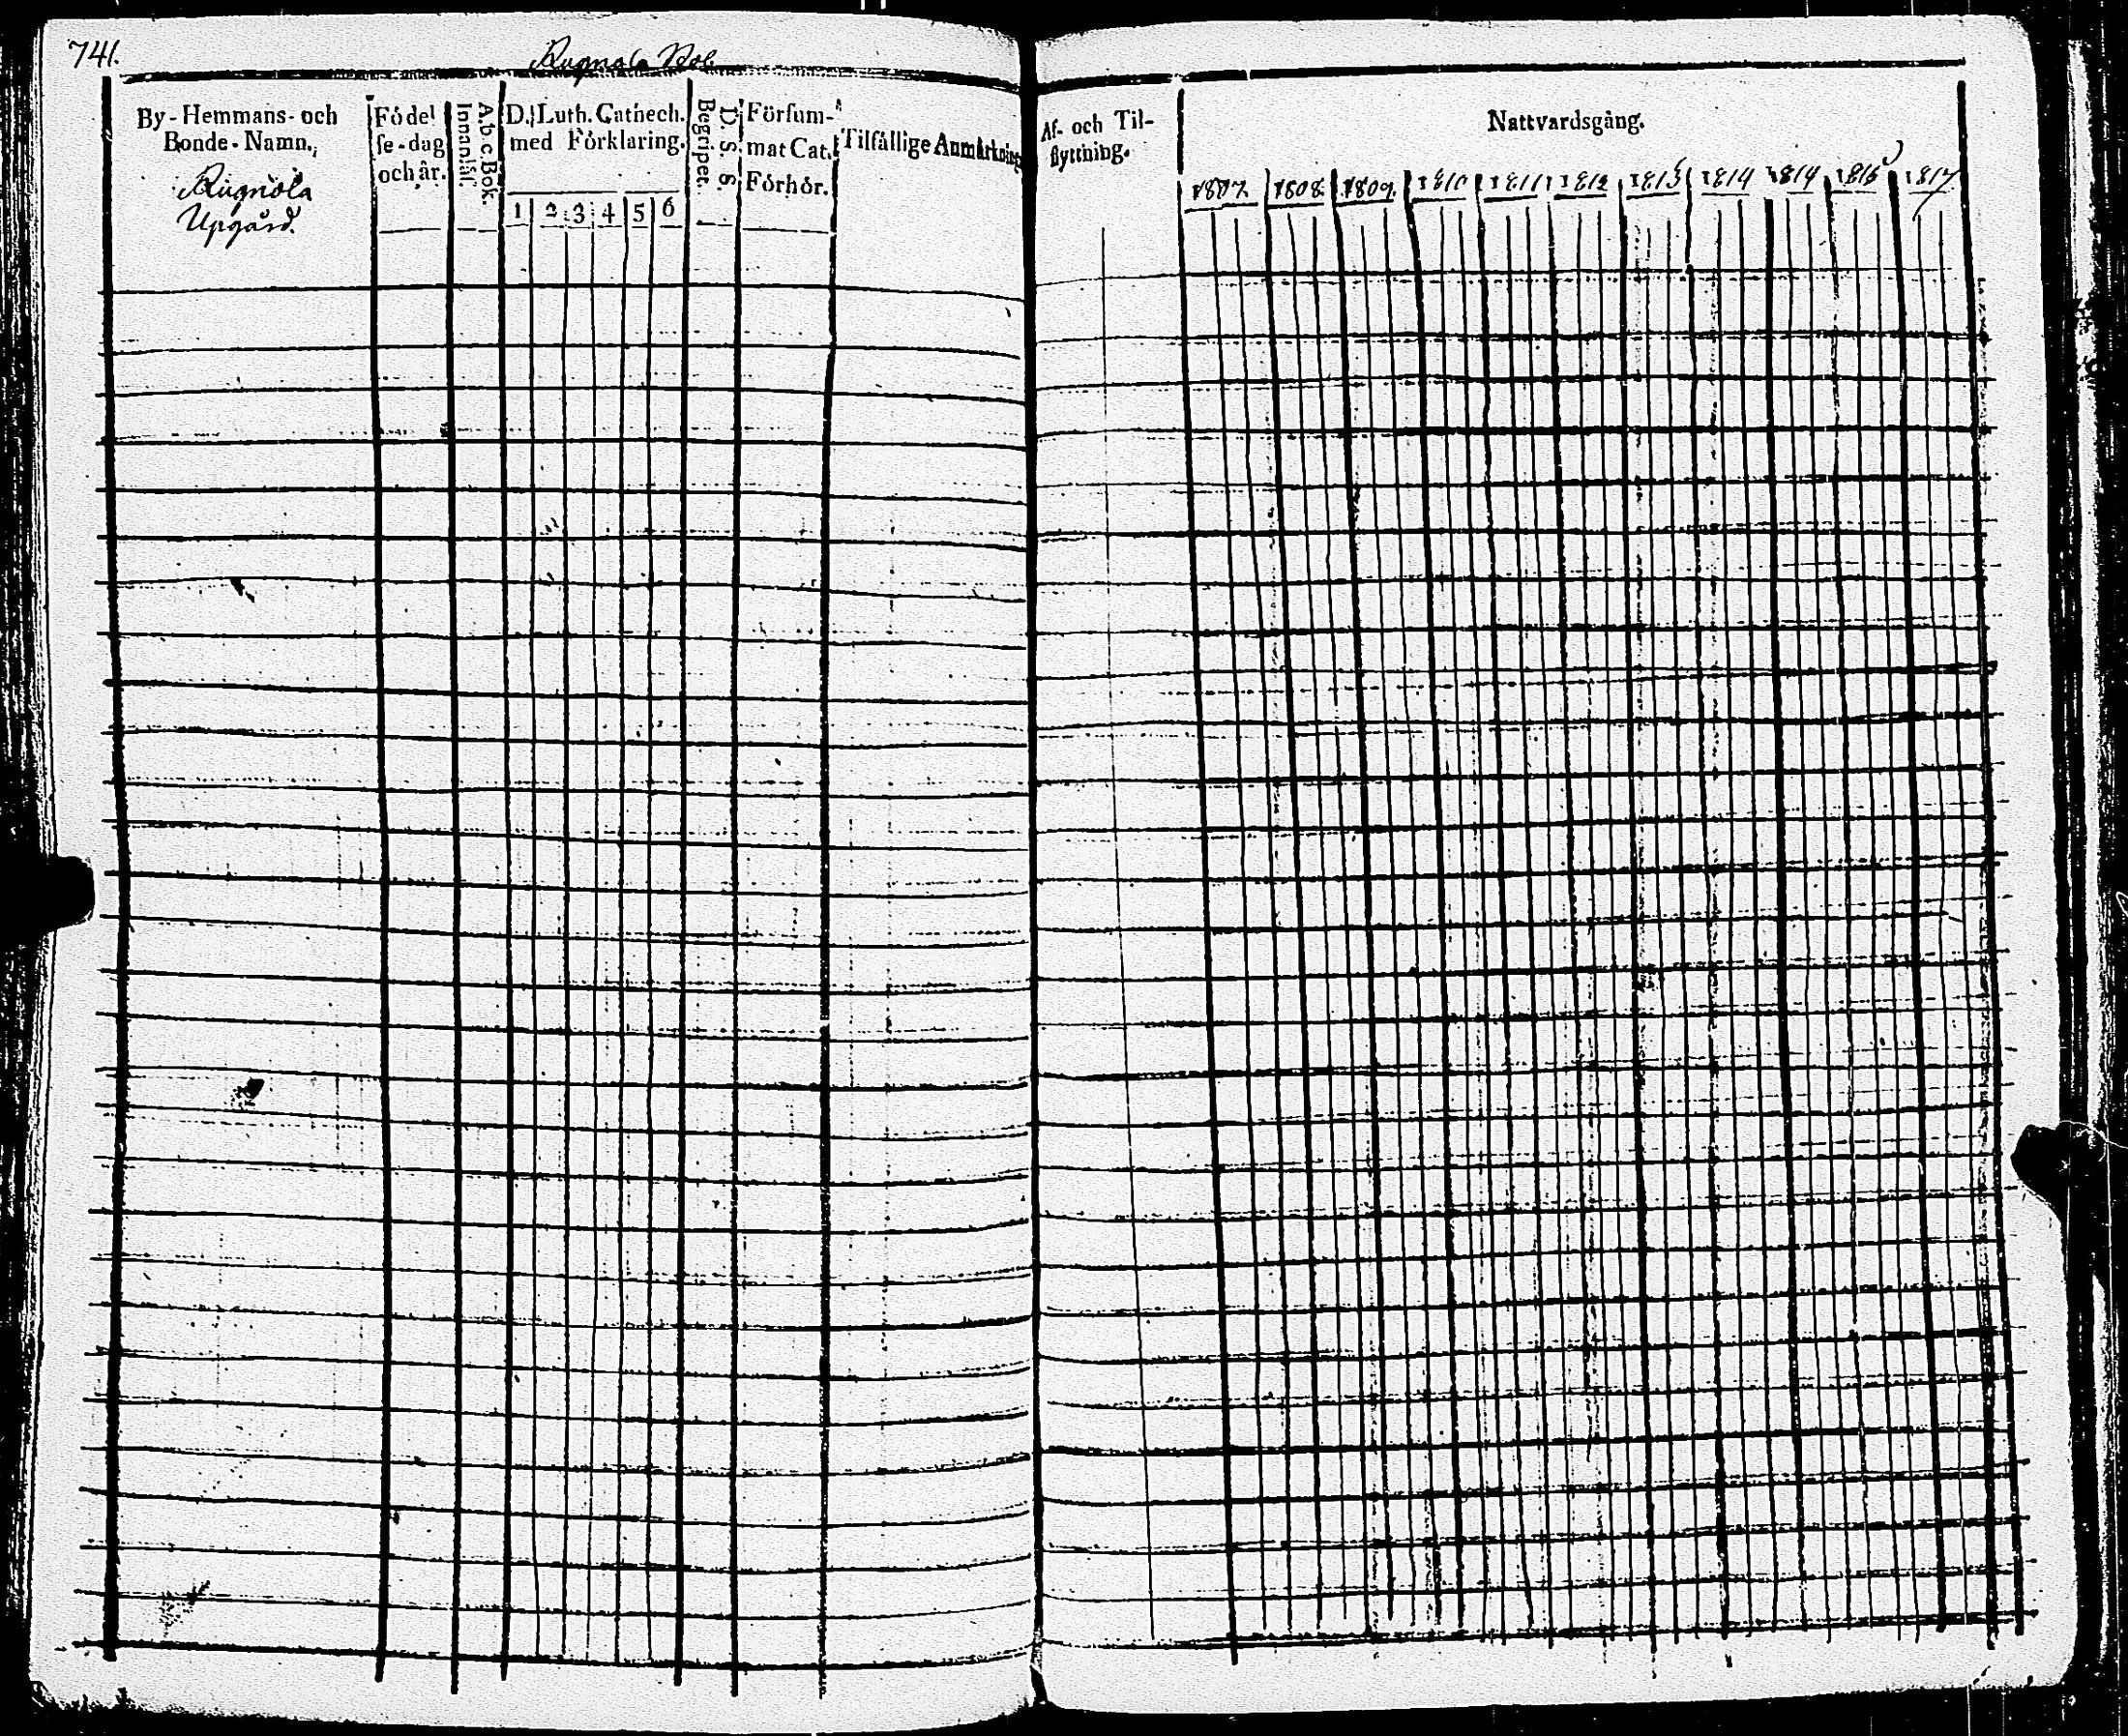 741.
Rugnola Bol
By-Hemmans- och
Bonde-Namn.
Rugnola
Upgård.
Födel
se-dag
och år.
A.b.c Bok.
Innantil.
D. Luth. Cathech.
med Förklaring.
1 2 3 4 5 6
D. S. S.
Begripet.
Försum-
mat Cat.
Förhör.
Tilfällige Anmärkning
Af- och Til-
flyttning.
Nattvardsgång.
1807. 1808. 1809. 1810 1811 1812 1813 1814 1814 1816 1817